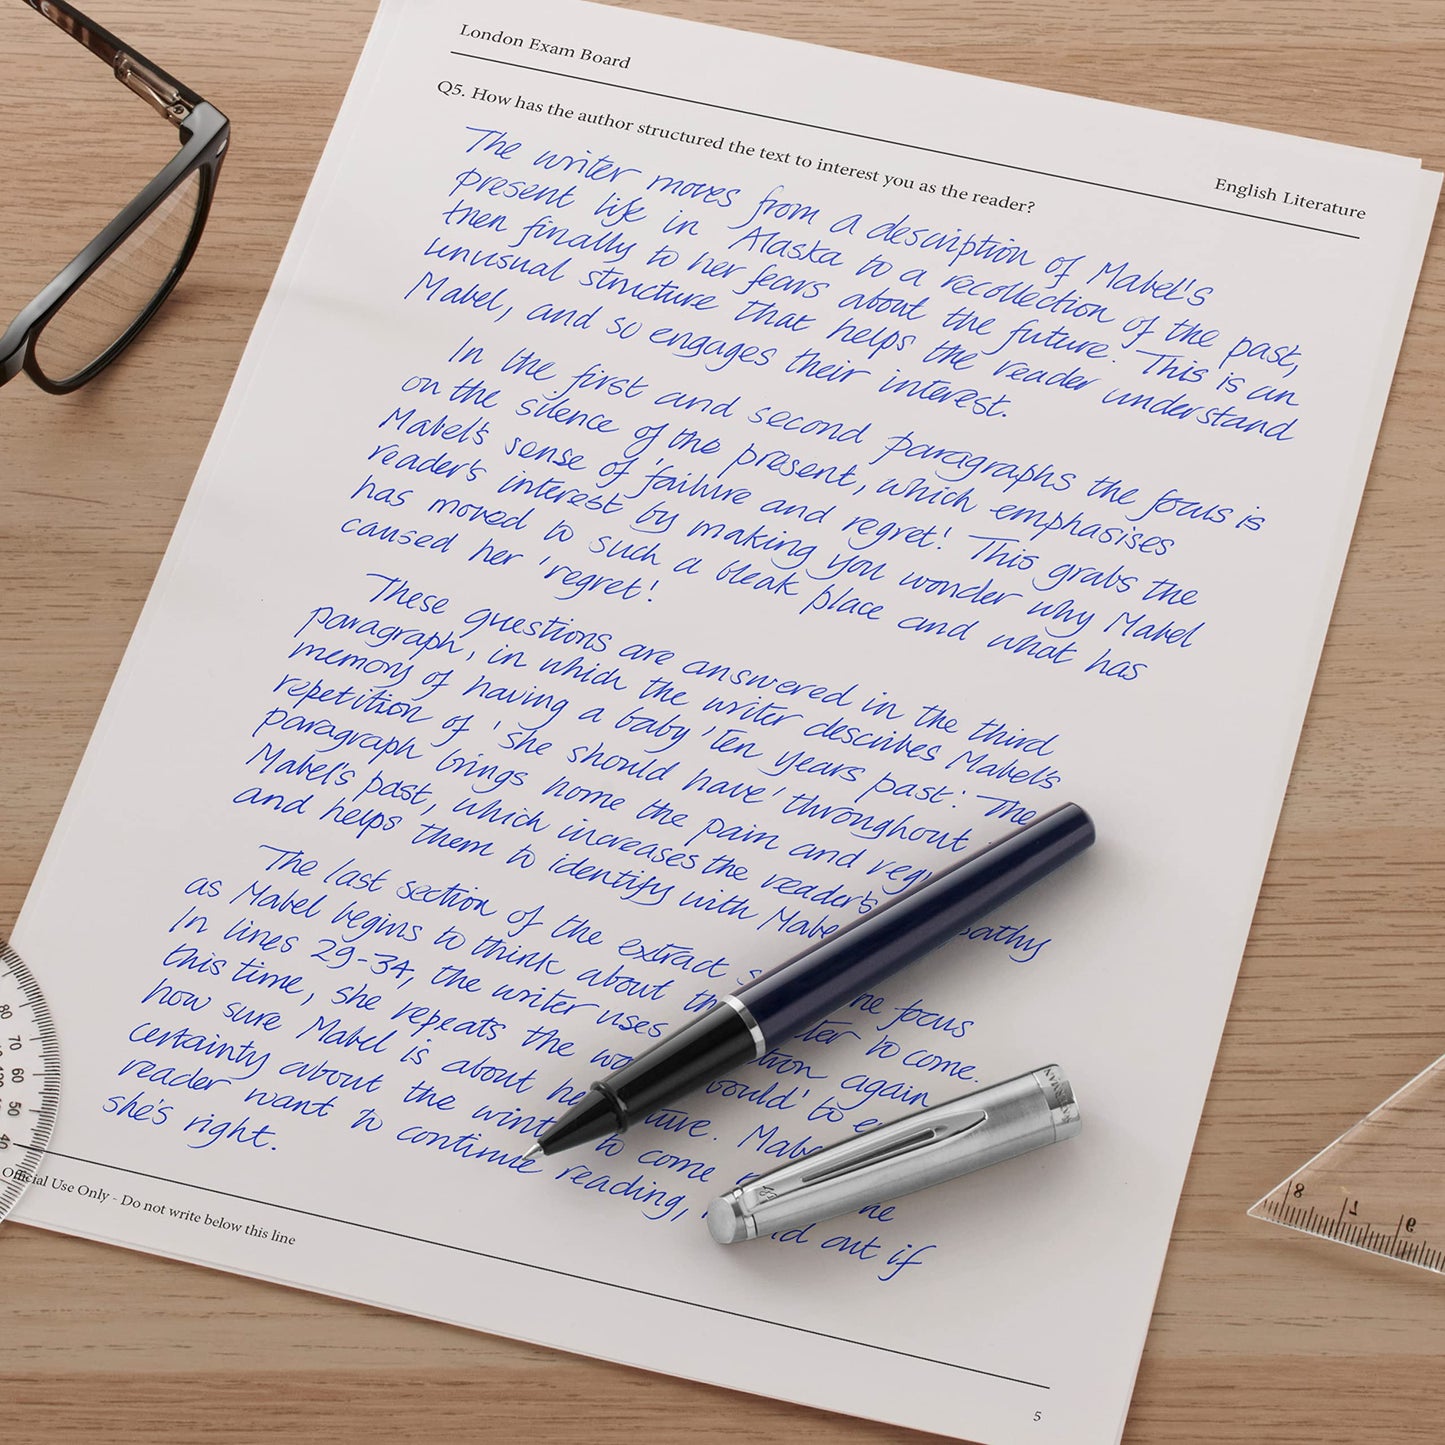 London Exam Board
English Literature
Q5. How has the author structured the text to interest you as the reader?
The writer moves from a description of Mabel's
present life in Alaska to a recollection of the past,
then finally to her fears about the future. This is an
unusual structure that helps the reader understand
Mabel, and so engages their interest.
In the first and second paragraphs the focus is
on the silence of the present, which emphasises
Mabel's sense of failure and regret! This grabs the
reader's interest by making you wonder why Mabel
has moved to such a bleak place and what has
caused her 'regret!
These questions are answered in the third
paragraph, in which the writer describes Mabel's
memory of having a baby 'ten years past'. The
repetition of 'she should have' throughout
paragraph brings home the pain and
Mabel's past, which increases the reader's
and helps them to identify with
The last section of the extract the focus
as Mabel begins to think about to come.
In lines 29-34, the writer uses again
this time, she repeats the would' to
how sure Mabel is about
certainty about the to come
reader want to continue reading, out if
she's right.
Official Use Only - Do not write below this line
5
80
70
60
50
40
8
7
6